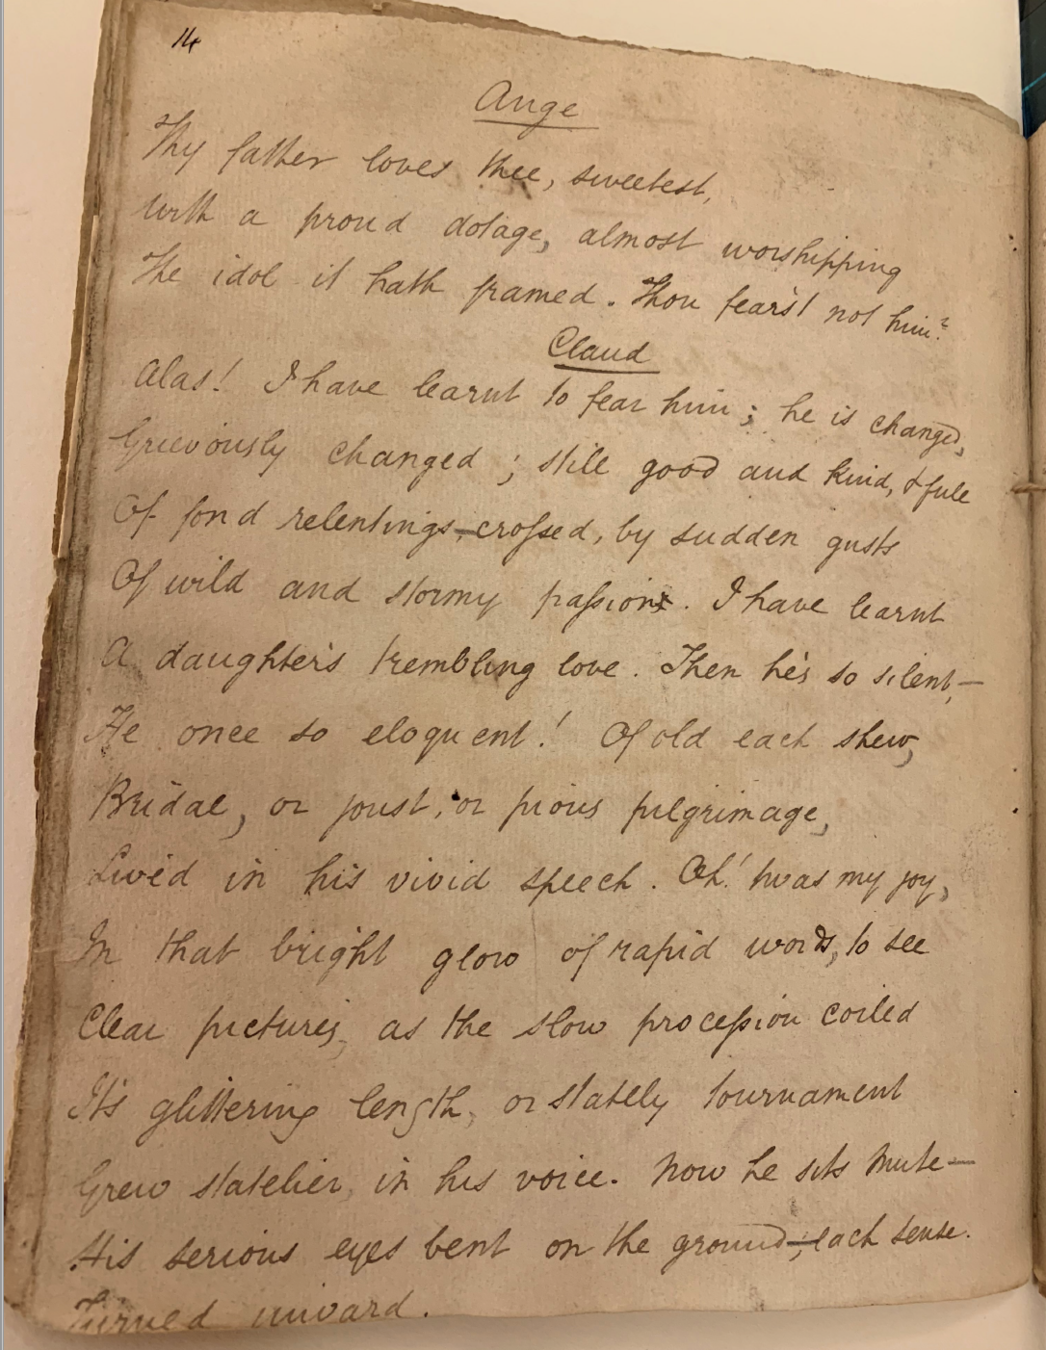 14
Ange
Thy father loves thee, sweetest,
With a proud dotage, almost worshipping
The idol it hath framed. Thou fear'st not him?
Claud
Alas! I have learnt to fear him; he is changed,
Grievously changed; still good and kind, & full
Of fond relentings,—crossed, by sudden gusts
Of wild and stormy passion. I have learnt
A daughter's trembling love. Then he's so silent,—
He once so eloquent! Of old each shew,
Bridal, or joust, or pious pilgrimage,
Liv'd in his vivid speech. Oh! 'twas my joy,
In that bright glow of rapid words, to see
Clear pictures, as the slow procession coiled
It's glittering length, or stately tournament
Grew statelier, in his voice. Now he sits mute—
His serious eyes bent on the ground,—each sense
Turned inward.